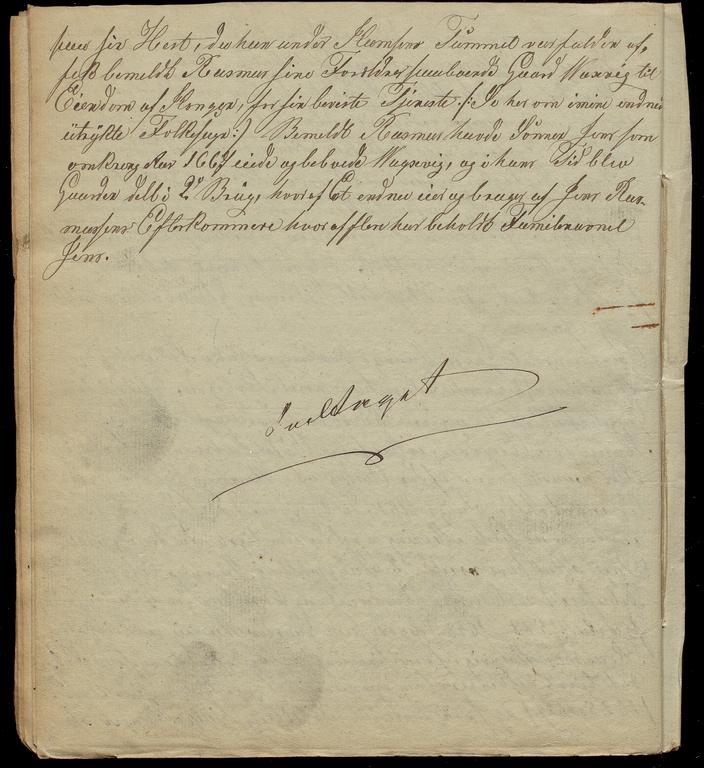 paa sin Hest, da han under Kampens Tummel var falden af,
fik bemeldt Rasmus sine Forældres paaboede Gaard Waxvig til
Eiendom af Kongen, for sin beviste Tjeneste /: Se her om i mine endnu
utrykte Folkesagn :/ Bemeldt Rasmus havde Sønner Jens som
omkring Aar 1667 eiede og beboede Waxvig, og i hans Tid blev
Gaarden delt i 2de Brug, hvoraf Et endnu eies og bruges af Jens Ras-
mussens Efterkommere hvoraf flere har beholdt Familienavnet
Jens.